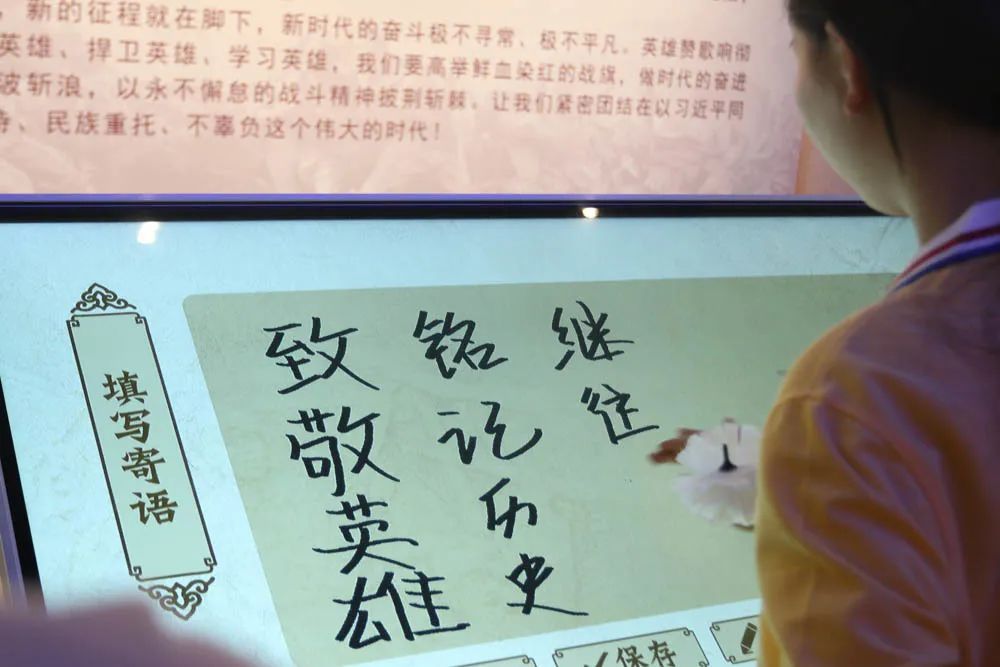 新的征程就在脚下，新时代的奋斗极不寻常、极不平凡。英雄赞歌响彻
英雄、捍卫英雄、学习英雄，我们要高举鲜血染红的战旗，做时代的奋进
破斩浪，以永不懈怠的战斗精神披荆斩棘。让我们紧密团结在以习近平同
待、民族重托、不辜负这个伟大的时代！
填写寄语
致敬英雄
铭记历史
继往
保存